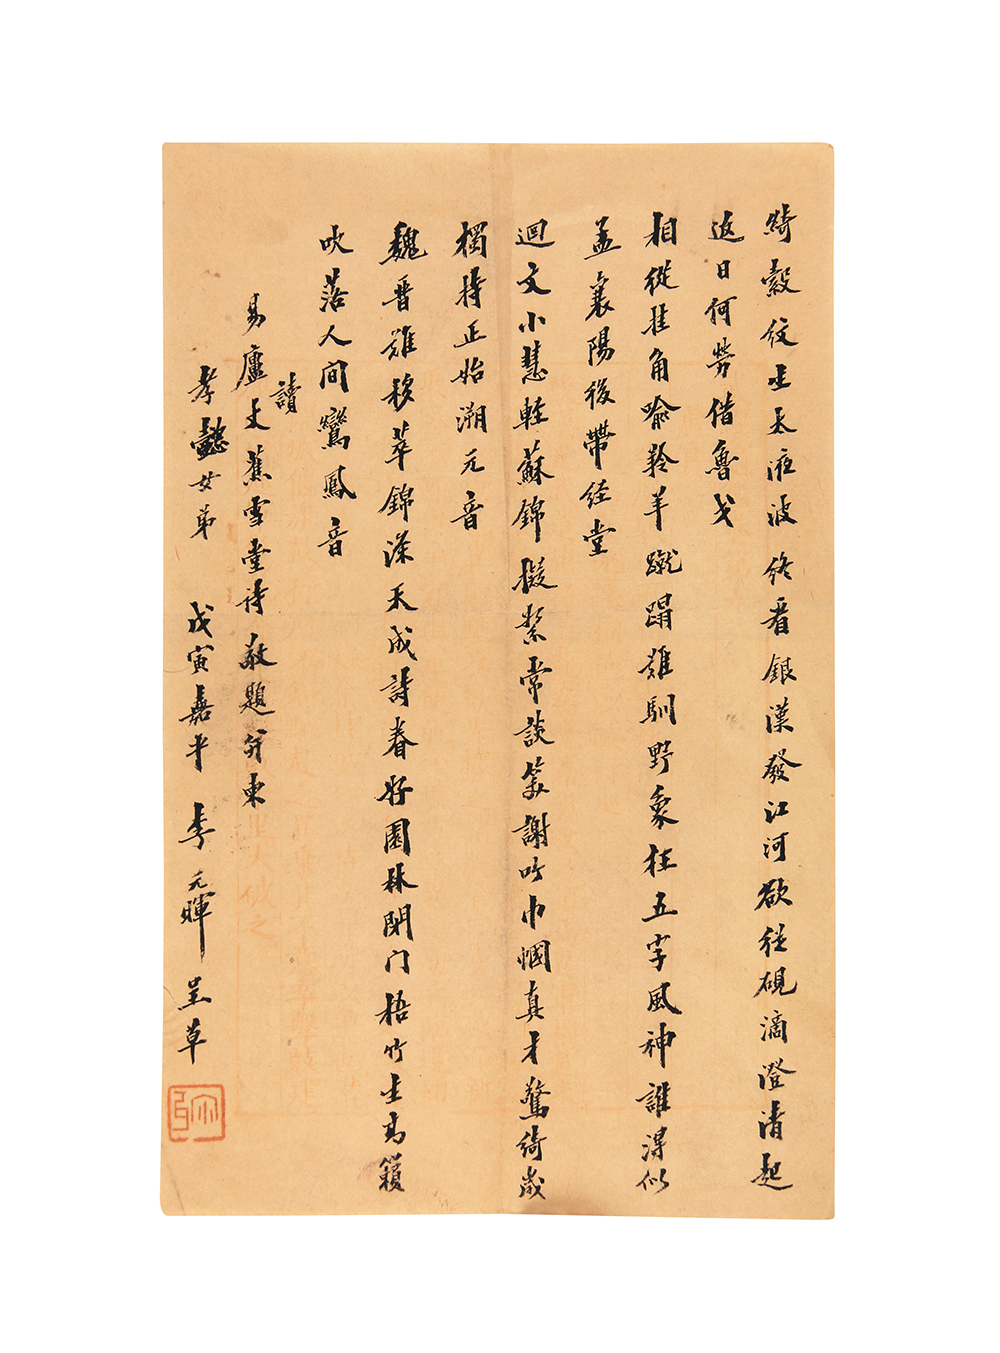 綺縠紋生太液波終看銀漢發江河欲從硯滴澄清起
返日何勞借魯戈
相從挂角喻羚羊蹴蹋難馴野象狂五字風神誰得似
孟襄陽後帶經堂
迴文小慧輕蘇錦擬絮常談笑謝吟巾幗真才驚綺歲
獨持正始溯元音
魏晉難移萃錦深天成詩春好園林閉门梧竹生高籟
吹落人间鸞鳳音
讀
易廬丈蕉雪堂诗敬題并柬
孝懿女弟 戊寅嘉平 李元暉呈草